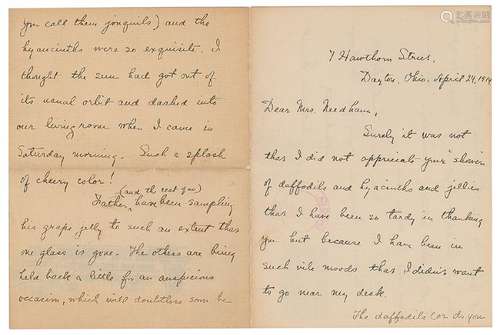 7 Hawthorn Street,
Dayton, Ohio. April 24, 1914
Dear Mrs. Needham,
Surely it was not
that I did not appreciate your "shower
of daffodils and hyacinths and jellies
that I have been so tardy in thanking
you but because I have been in
such vile moods that I didn't want
to go near my desk.
The daffodils (or do you
you call them jonquils) and the
hyacinths were so exquisite. I
thought the sun had got out of
its usual orbit and dashed into
our living room when I came in
Saturday morning. Such a splash
of cheery color!
(and the rest too)
Father have been sampling
his grape jelly to such an extent that
one glass is gone. The others are being
held back a little for an auspicious
occasion, which will doubtless soon be